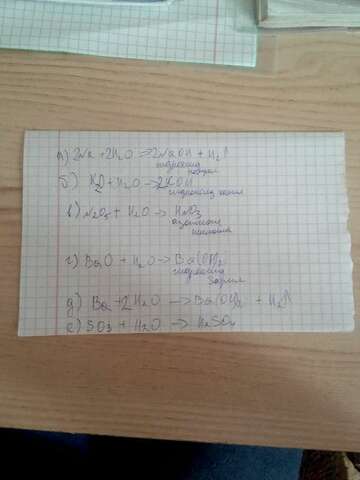 а) 2Na + 2H₂O → 2NaOH + H₂↑
гидроксид натрия
б) K₂O + H₂O → 2KOH
гидроксид калия
в) N₂O₅ + H₂O → HNO₃
азотная кислота
г) BaO + H₂O → Ba(OH)₂
гидроксид бария
д) Ba + 2H₂O → Ba(OH)₂ + H₂↑
е) SO₃ + H₂O → H₂SO₄